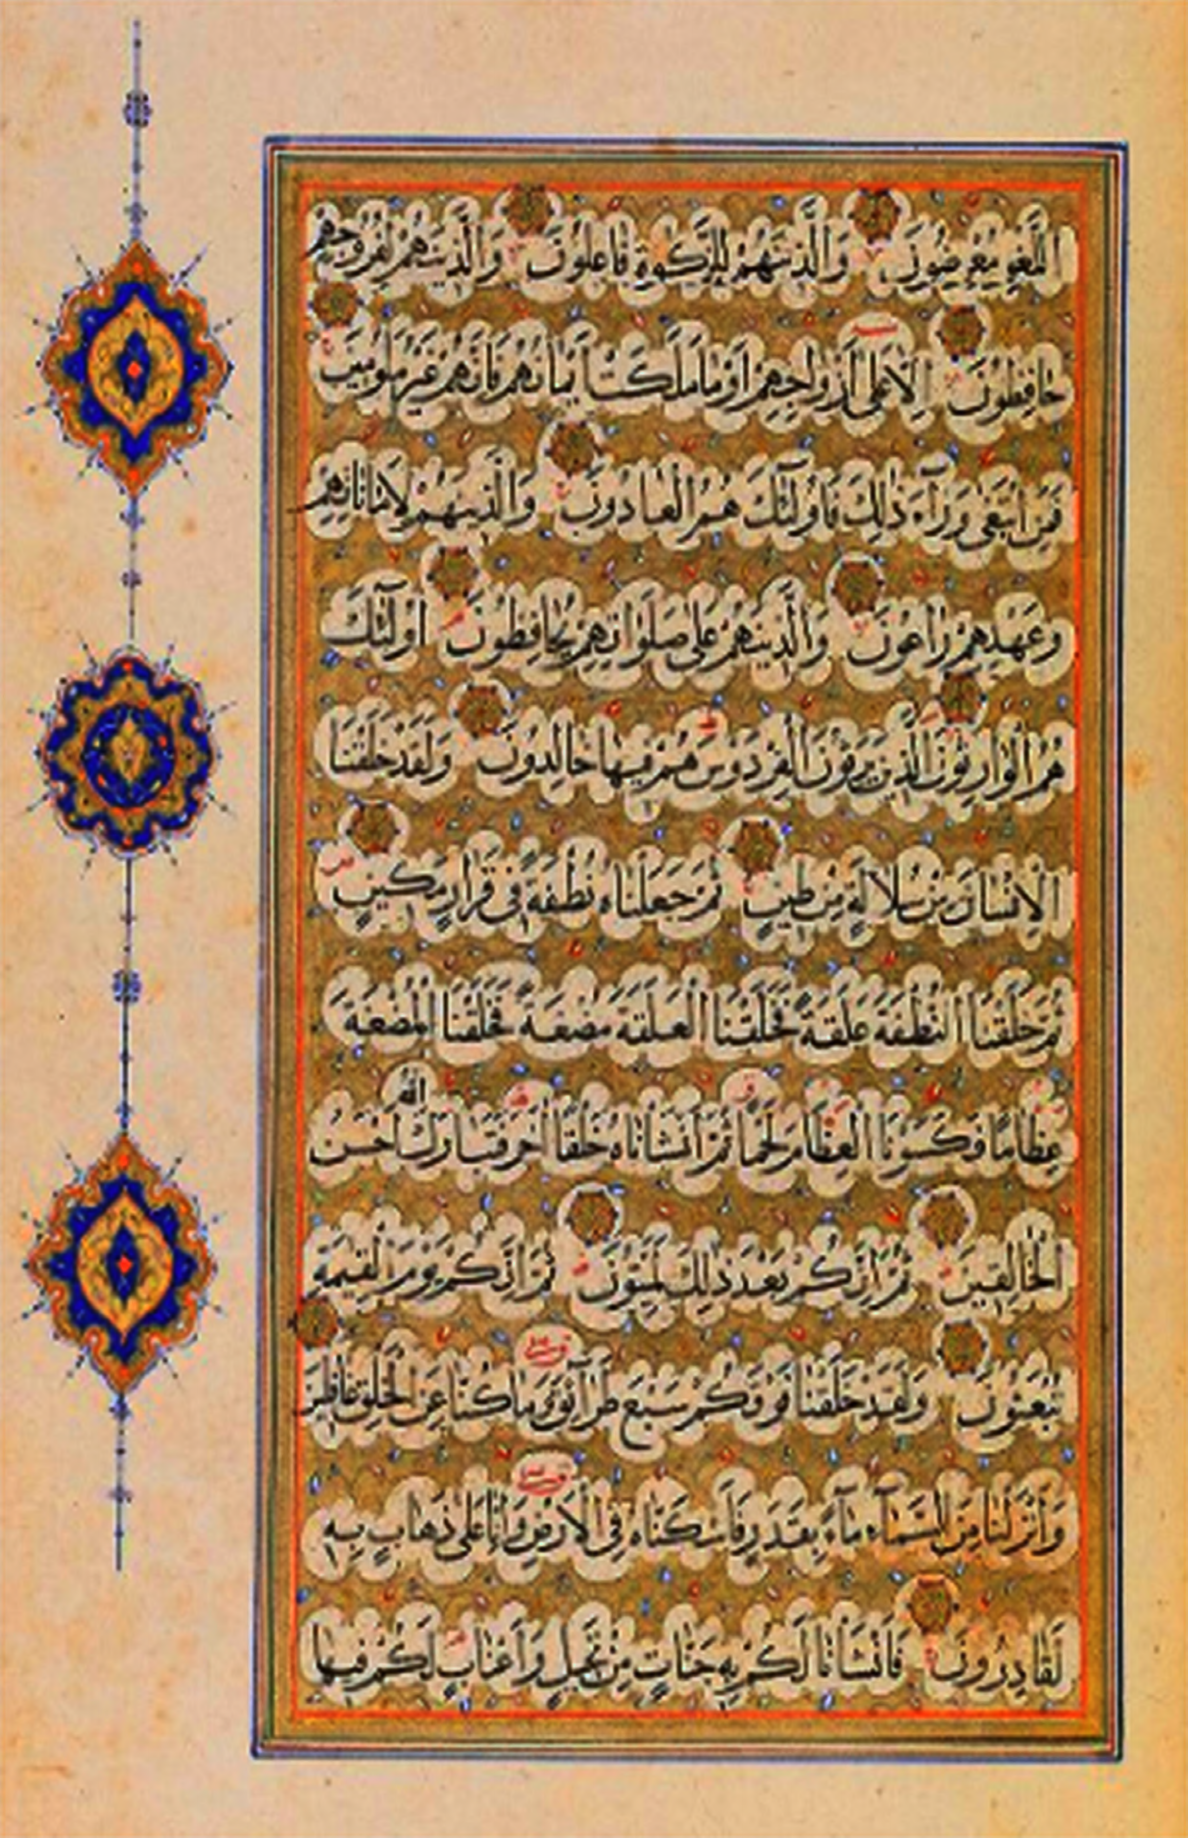 اللَّغْوِ مُعْرِضُونَ وَالَّذِينَ هُمْ لِلزَّكٰوةِ فَاعِلُونَ وَالَّذِينَ هُمْ لِفُرُوجِهِمْ
حَافِظُونَ إِلَّا عَلَى أَزْوَاجِهِمْ أَوْ مَا مَلَكَتْ أَيْمَانُهُمْ فَإِنَّهُمْ غَيْرُ مَلُومِينَ
فَمَنِ ابْتَغَى وَرَآءَ ذَلِكَ فَأُولَئِكَ هُمُ الْعَادُونَ وَالَّذِينَ هُمْ لِأَمَانَاتِهِمْ
وَعَهْدِهِمْ رَاعُونَ وَالَّذِينَ هُمْ عَلَى صَلَوَاتِهِمْ يُحَافِظُونَ أُولَئِكَ
هُمُ الْوَارِثُونَ الَّذِينَ يَرِثُونَ الْفِرْدَوْسَ هُمْ فِيهَا خَالِدُونَ وَلَقَدْ خَلَقْنَا
الْإِنْسَانَ مِنْ سُلَالَةٍ مِنْ طِينٍ ثُمَّ جَعَلْنَاهُ نُطْفَةً فِي قَرَارٍ مَكِينٍ
ثُمَّ خَلَقْنَا النُّطْفَةَ عَلَقَةً فَخَلَقْنَا الْعَلَقَةَ مُضْغَةً فَخَلَقْنَا الْمُضْغَةَ
عِظَامًا فَكَسَوْنَا الْعِظَامَ لَحْمًا ثُمَّ أَنْشَأْنَاهُ خَلْقًا آخَرَ فَتَبَارَكَ اللَّهُ أَحْسَنُ
الْخَالِقِينَ ثُمَّ إِنَّكُمْ بَعْدَ ذَلِكَ لَمَيِّتُونَ ثُمَّ إِنَّكُمْ يَوْمَ الْقِيٰمَةِ
تُبْعَثُونَ وَلَقَدْ خَلَقْنَا فَوْقَكُمْ سَبْعَ طَرَآئِقَ وَمَا كُنَّا عَنِ الْخَلْقِ غَافِلِينَ
وَأَنْزَلْنَا مِنَ السَّمَآءِ مَآءً بِقَدَرٍ فَأَسْكَنَّاهُ فِي الْأَرْضِ وَإِنَّا عَلَى ذَهَابٍ بِهِ
لَقَادِرُونَ فَأَنْشَأْنَا لَكُمْ بِهِ جَنَّاتٍ مِنْ نَخِيلٍ وَأَعْنَابٍ لَكُمْ فِيهَا